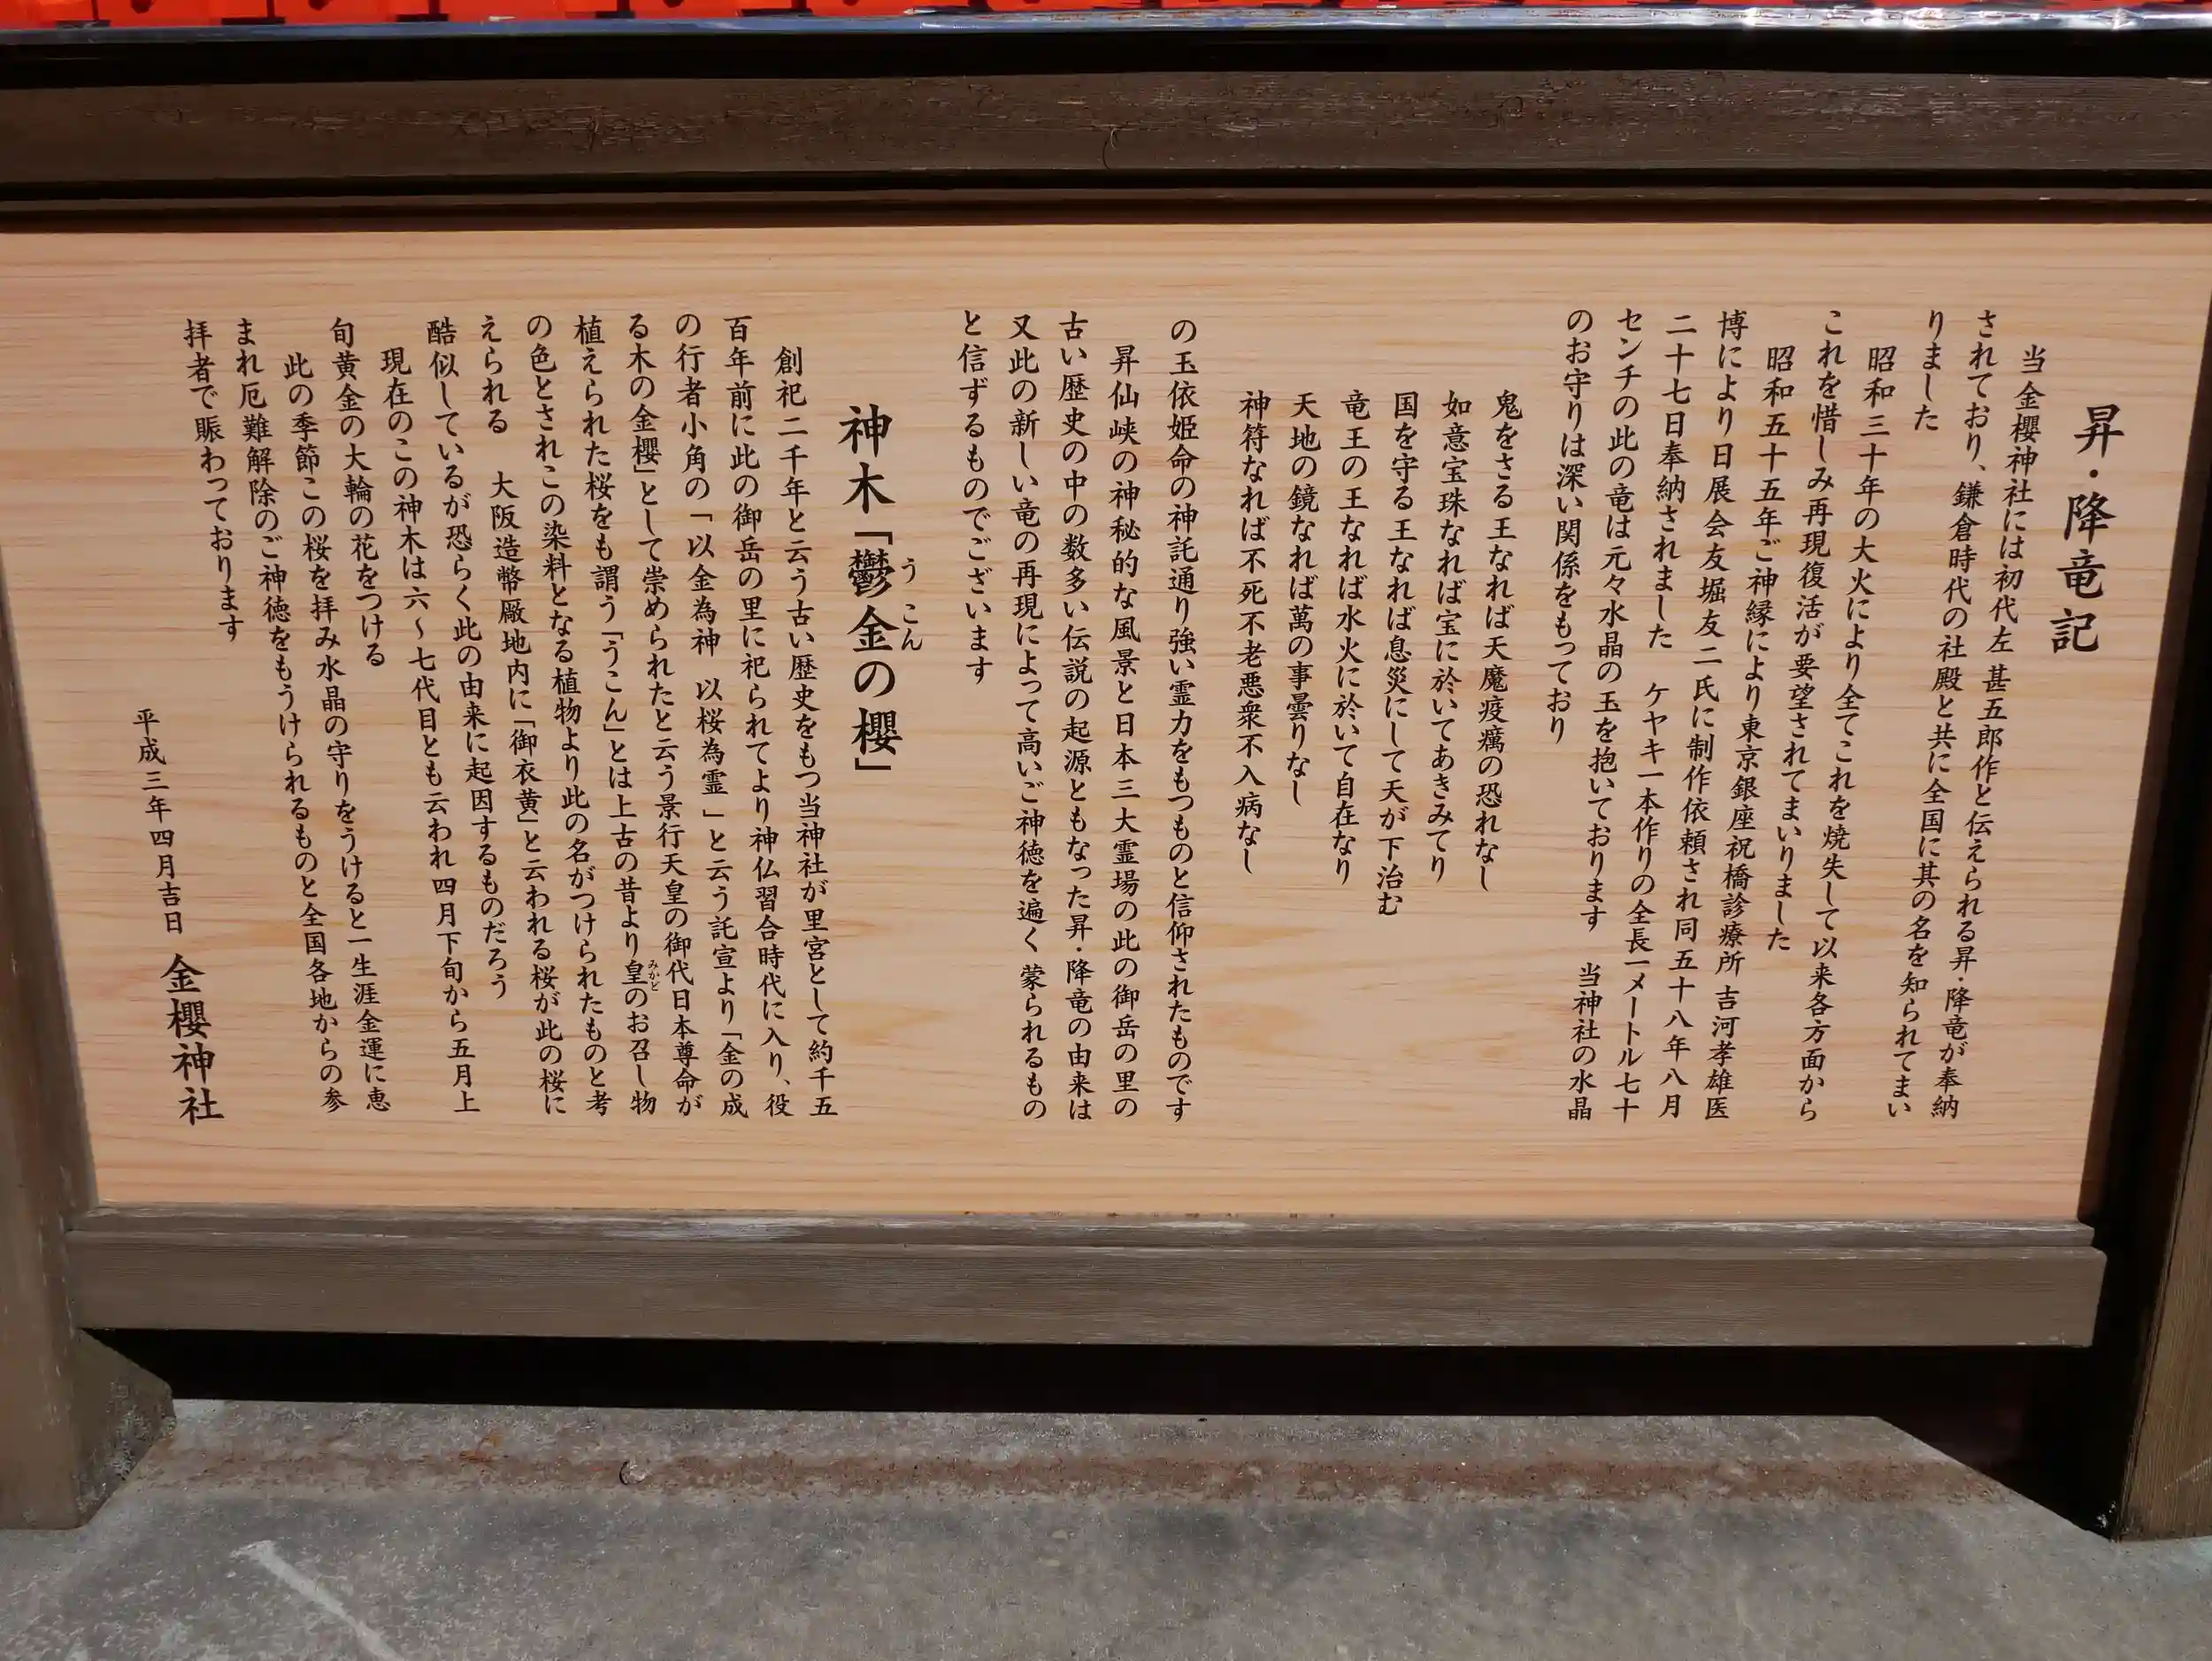 昇・降竜記
当金櫻神社には初代左 甚五郎作と伝えられる昇・降竜が奉納
されており、鎌倉時代の社殿と共に全国に其の名を知られてまい
りました
昭和三十年の大火により全てこれを焼失して以来各方面から
これを惜しみ再現復活が要望されてまいりました
昭和五十五年ご神縁により東京銀座祝橋診療所 吉河孝雄医
博により日展会友堀友二氏に制作依頼され同五十八年八月
二十七日奉納されました ケヤキ一本作りの全長一メートル七十
センチの此の竜は元々水晶の玉を抱いております 当神社の水晶
のお守りは深い関係をもっており
鬼をさる王なれば天魔疫癘の恐れなし
如意宝珠なれば宝に於いてあきみてり
国を守る王なれば息災にして天が下治む
竜王の王なれば水火に於いて自在なり
天地の鏡なれば萬の事曇りなし
神符なれば不死不老悪衆不入病なし
の玉依姫命の神託通り強い霊力をもつものと信仰されたものです
昇仙峡の神秘的な風景と日本三大霊場の此の御岳の里の
古い歴史の中の数多い伝説の起源ともなった昇・降竜の由来は
又此の新しい竜の再現によって高いご神徳を遍く蒙られるもの
と信ずるものでございます
神木「鬱金の櫻」
うこん
創祀二千年と云う古い歴史をもつ当神社が里宮として約千五
百年前に此の御岳の里に祀られてより神仏習合時代に入り、役
の行者小角の「以金為神 以桜為霊」と云う託宣より「金の成
る木の金櫻」として崇められたと云う景行天皇の御代日本尊命が
植えられた桜をも謂う「うこん」とは上古の昔より皇のお召し物
みかど
の色とされこの染料となる植物より此の名がつけられたものと考
えられる 大阪造幣廠地内に「御衣黄」と云われる桜が此の桜に
酷似しているが恐らく此の由来に起因するものだろう
現在のこの神木は六~七代目とも云われ四月下旬から五月上
旬黄金の大輪の花をつける
此の季節この桜を拝み水晶の守りをうけると一生涯金運に恵
まれ厄難解除のご神徳をもうけられるものと全国各地からの参
拝者で賑わっております
平成三年四月吉日 金櫻神社